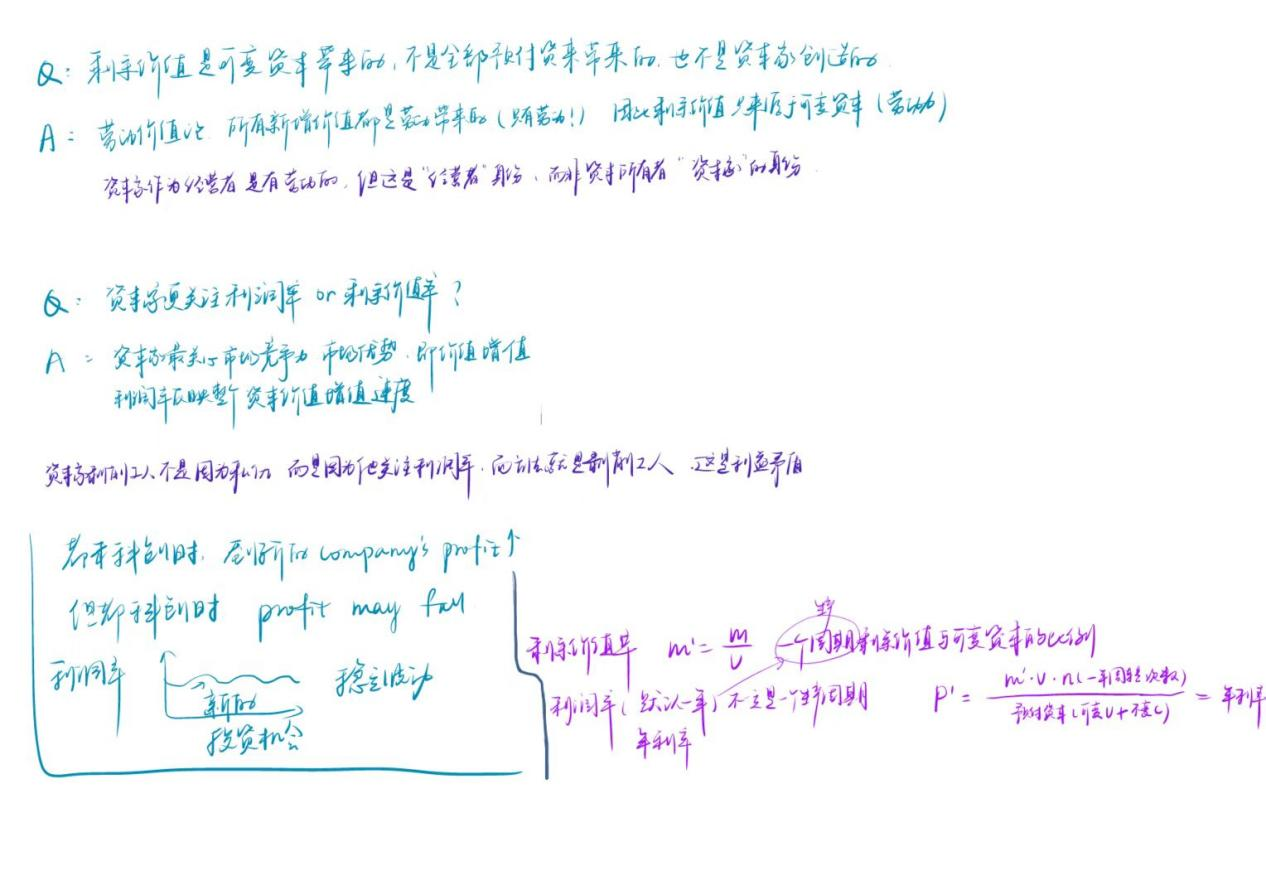 Q: 剩余价值是可变资本带来的,不是全部预付资本带来的.也不是资本家创造的.
A: 劳动价值论 所有新增价值都是劳动带来的(只有劳动!) 因此剩余价值只来原于可变资本(劳动力)
资本家作为经营者是有劳动的,但这是"经营者"身份,而非资本所有者"资本家"的身份.
Q: 资本家更关注利润率 or 剩余价值率?
A: 资本家最关心市场竞争力 市场优势.即价值增值
利润率反映整个资本价值增值速度
资本家剥削工人不是因为私仇 而是因为他关注利润率,而方法就是剥削工人 这是利益矛盾
若不科创时. 创新的 company's profit↑
但都科创时 profit may fall
利润率 稳定波动
新的
投资机会
生产
剩余价值率 m' = m/v 一个周期剩余价值与可变资本的比例
利润率(默认一年)不定是一个生产周期
年利率
P' = m'·v·n(一年周转次数)/预付资本(可变v+不变c) = 年利率